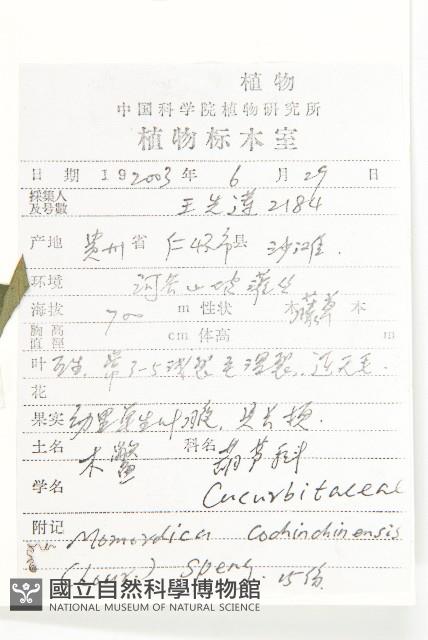 植物
中国科学院植物研究所
植物标本室
日 期 19 2003 年 6 月 29 日
採集人及号數 王先謹 2184
产地 貴州 省 仁怀市 县 沙滩.
环境 河谷山坡灌丛
海拔 700 m 性状 木藤草 本
胸高直徑 cm 体高 m
叶 互生, 常3-5浅裂至深裂,
花
果实 幼果单生叶腋, 具长梗.
土名 木鳖 科名 葫芦科
学名 Cucurbitaceae
附记 Momordica Cochinchinensis
(Lour.) Spreng. 15份.
國立自然科學博物館
NATIONAL MUSEUM OF NATURAL SCIENCE